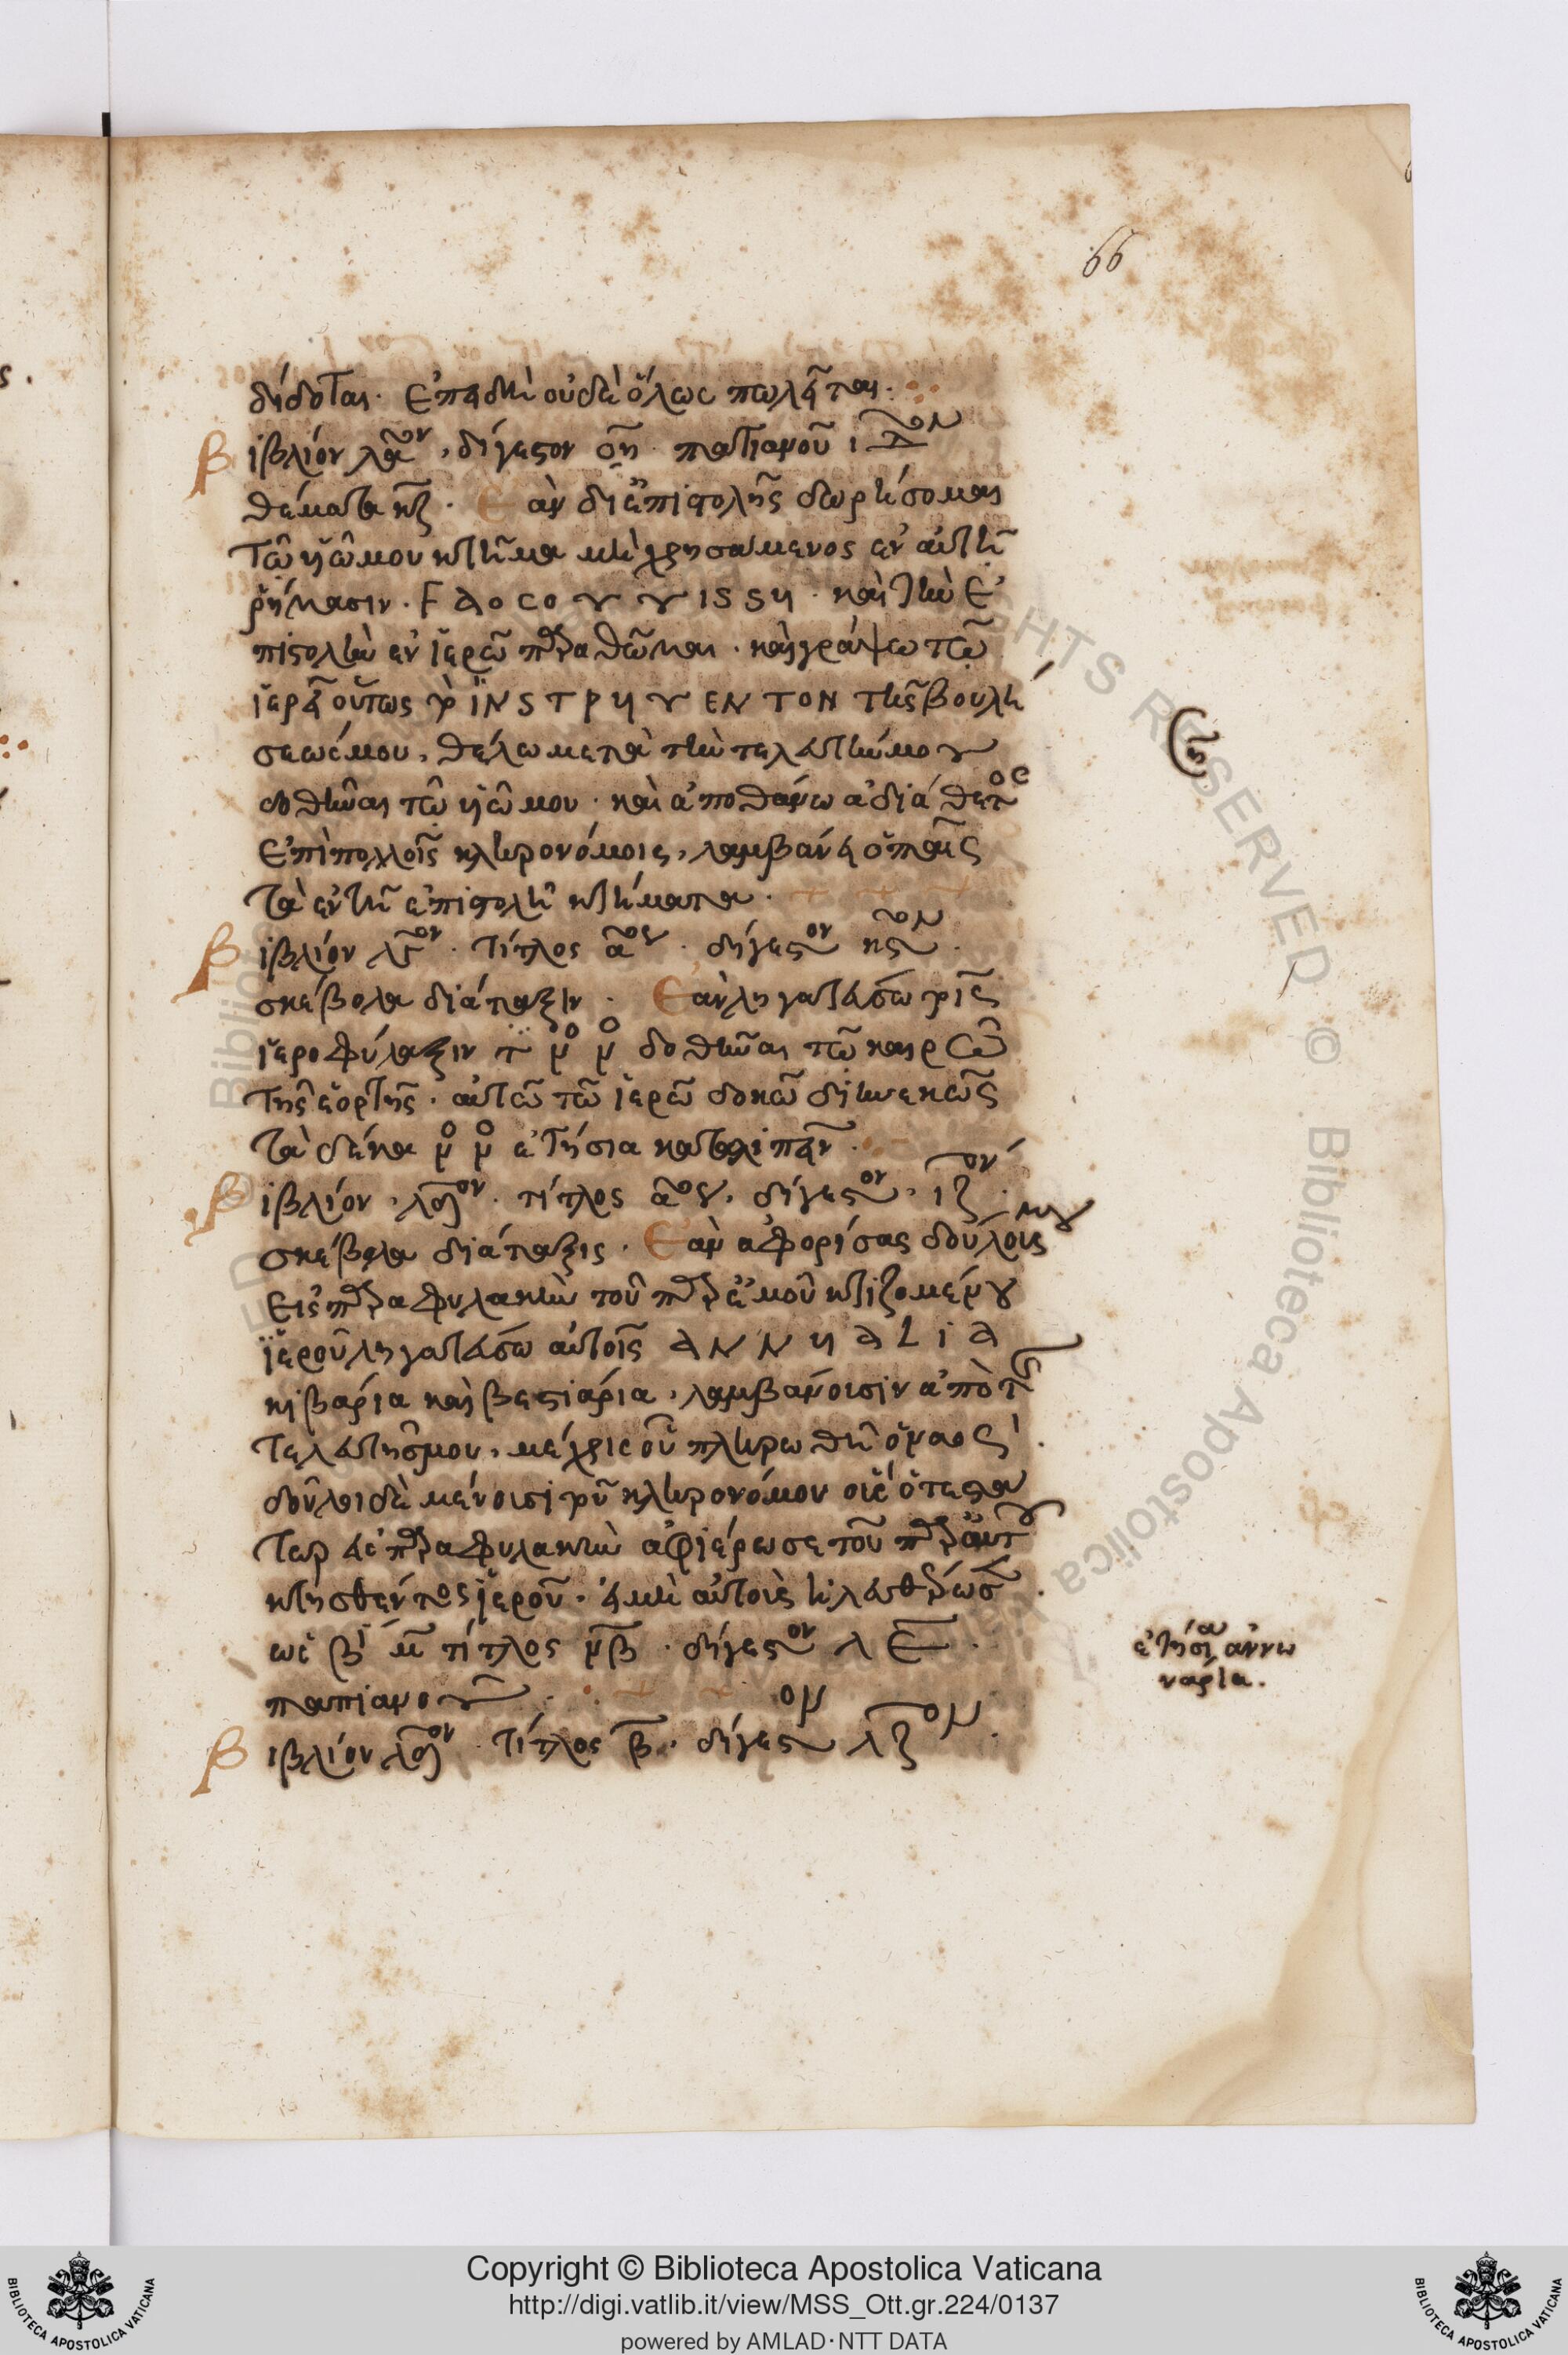 66
δίδοται. Ἐπειδὴ οὐδὲ ὅλως πωλεῖται.
Βιβλίον λα̅ον, δίγεστον ο̅η. παπιανοῦ ι
θέματα κζ. Ἐὰν δι ἐπιστολῆς δωρήσομαι
τῶ υἱῶ μου κτῆμα μὴ χρησάμενος ἐν αὐτῆ
ῥήμασιν. FAOCOΥΥISSU. καὶ τὴν ἐ
πιστολὴν ἐν ἱερῶ π̅ρα θῶμαι. καὶ γράψω τῶ
ἱερεῖ οὕτως INSTPUΥENTON τῆς βουλή
σεως μου, θέλω μετὰ τὴν τελευτήν μου
δοθῆναι τῶ υἱῶ μου. καὶ ἀποθάνω ἀδιάθετος
ἐπὶ πολλοῖς κληρονόμοις, λαμβάνει ὁ παῖς
τὰ ἐν τῆ ἐπιστολῆ κτήματα.
Βιβλίον λγ̅ον. τίτλος α̅ου. δίγεστον κς̅ον.
σκέβολα διάταξιν. Ἐὰν ληγατεύσω τρὶς
ἱεροφύλαξιν τ̅ ν̊ ν̊ δοθῆναι τῶ καιρῶ
τῆς ἑορτῆς. αὐτῶ τῶ ἱερῶ δοκῶ διηνεκῶς
τὰ δέκα ν̊ ν̊ ἐτήσια καταλιπεῖν.
Βιβλίον, λγ̅ον. τίτλος α̅ου, δίγεστον, ιζ̅ον.
σκέβολα διάταξις. Ἐὰν ἀφορίσας δούλους μου
εἰς παραφυλακὴν τοῦ παρ ἐμοῦ κτιζομένου
ἱεροῦ ληγατεύσω αὐτοῖς ANNUALIA
κιβάρια καὶ βεστιάρια, λαμβάνουσιν ἀπὸ τῆς
τελευτῆς μου, μέχρις οὗ πληρωθῆ ὁ ναός.
δοῦλοι δὲ μένουσι τοῦ κληρονόμου οἷς ὁ τεστα
τωρ εἰς παραφυλακὴν ἀφιέρωσε τοῦ παρ αὐτοῦ
κτησθέντος ἱεροῦ. εἰ μὴ αὐτοὺς ἠλευθέρωσεν.
ὡς β̅ι μ̅ τίτλος μ̅β. δίγεστον λ ε̅.
παπιανοῦ.
Βιβλίον λγ̅ον. τίτλος β̅. δίγεστον λζ̅ον.
ἐτήσια ἀννω
ναρία.
Copyright © Biblioteca Apostolica Vaticana
http://digi.vatlib.it/view/MSS_Ott.gr.224/0137
powered by AMLAD·NTT DATA
BIBLIOTECA APOSTOLICA VATICANA
BIBLIOTECA APOSTOLICA VATICANA